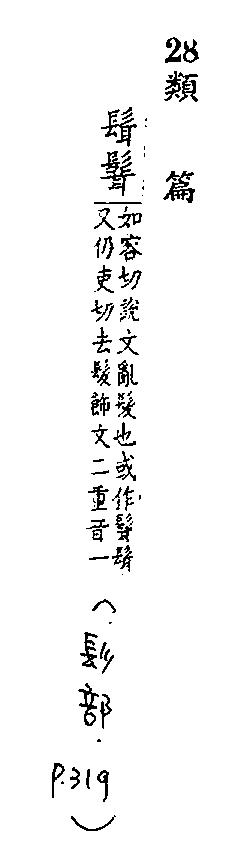 28 類篇
髶
如容切說文亂髮也或作
又仍吏切去髮飾文二重音一
(髟部.
P.319)